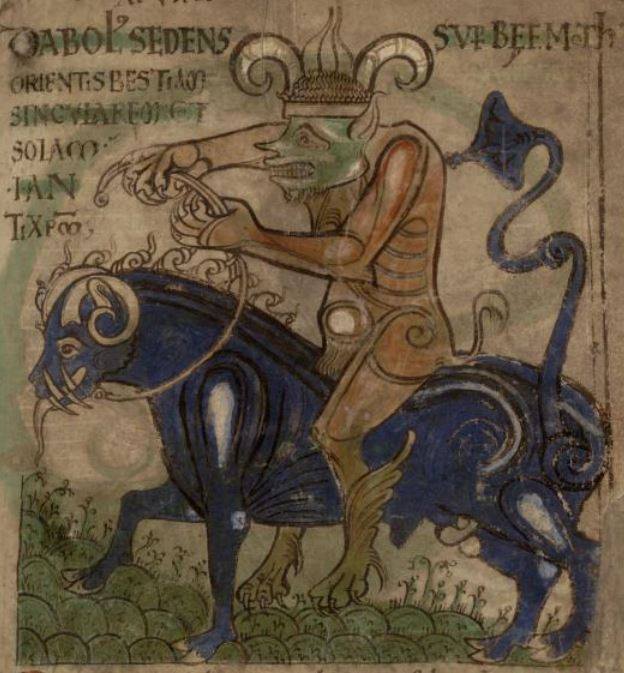 DIABOL' SEDENS SVP BEEMOTh
ORIENTIS BESTIAM
SINGVLAREM ET
SOLAM·
·IAN
TIXPM